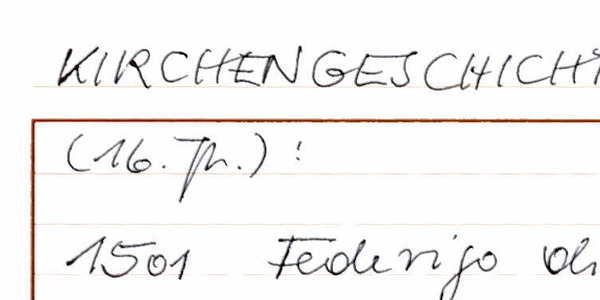 KIRCHENGESCHICHT
(16. Jh.) :
1501 Federigo di